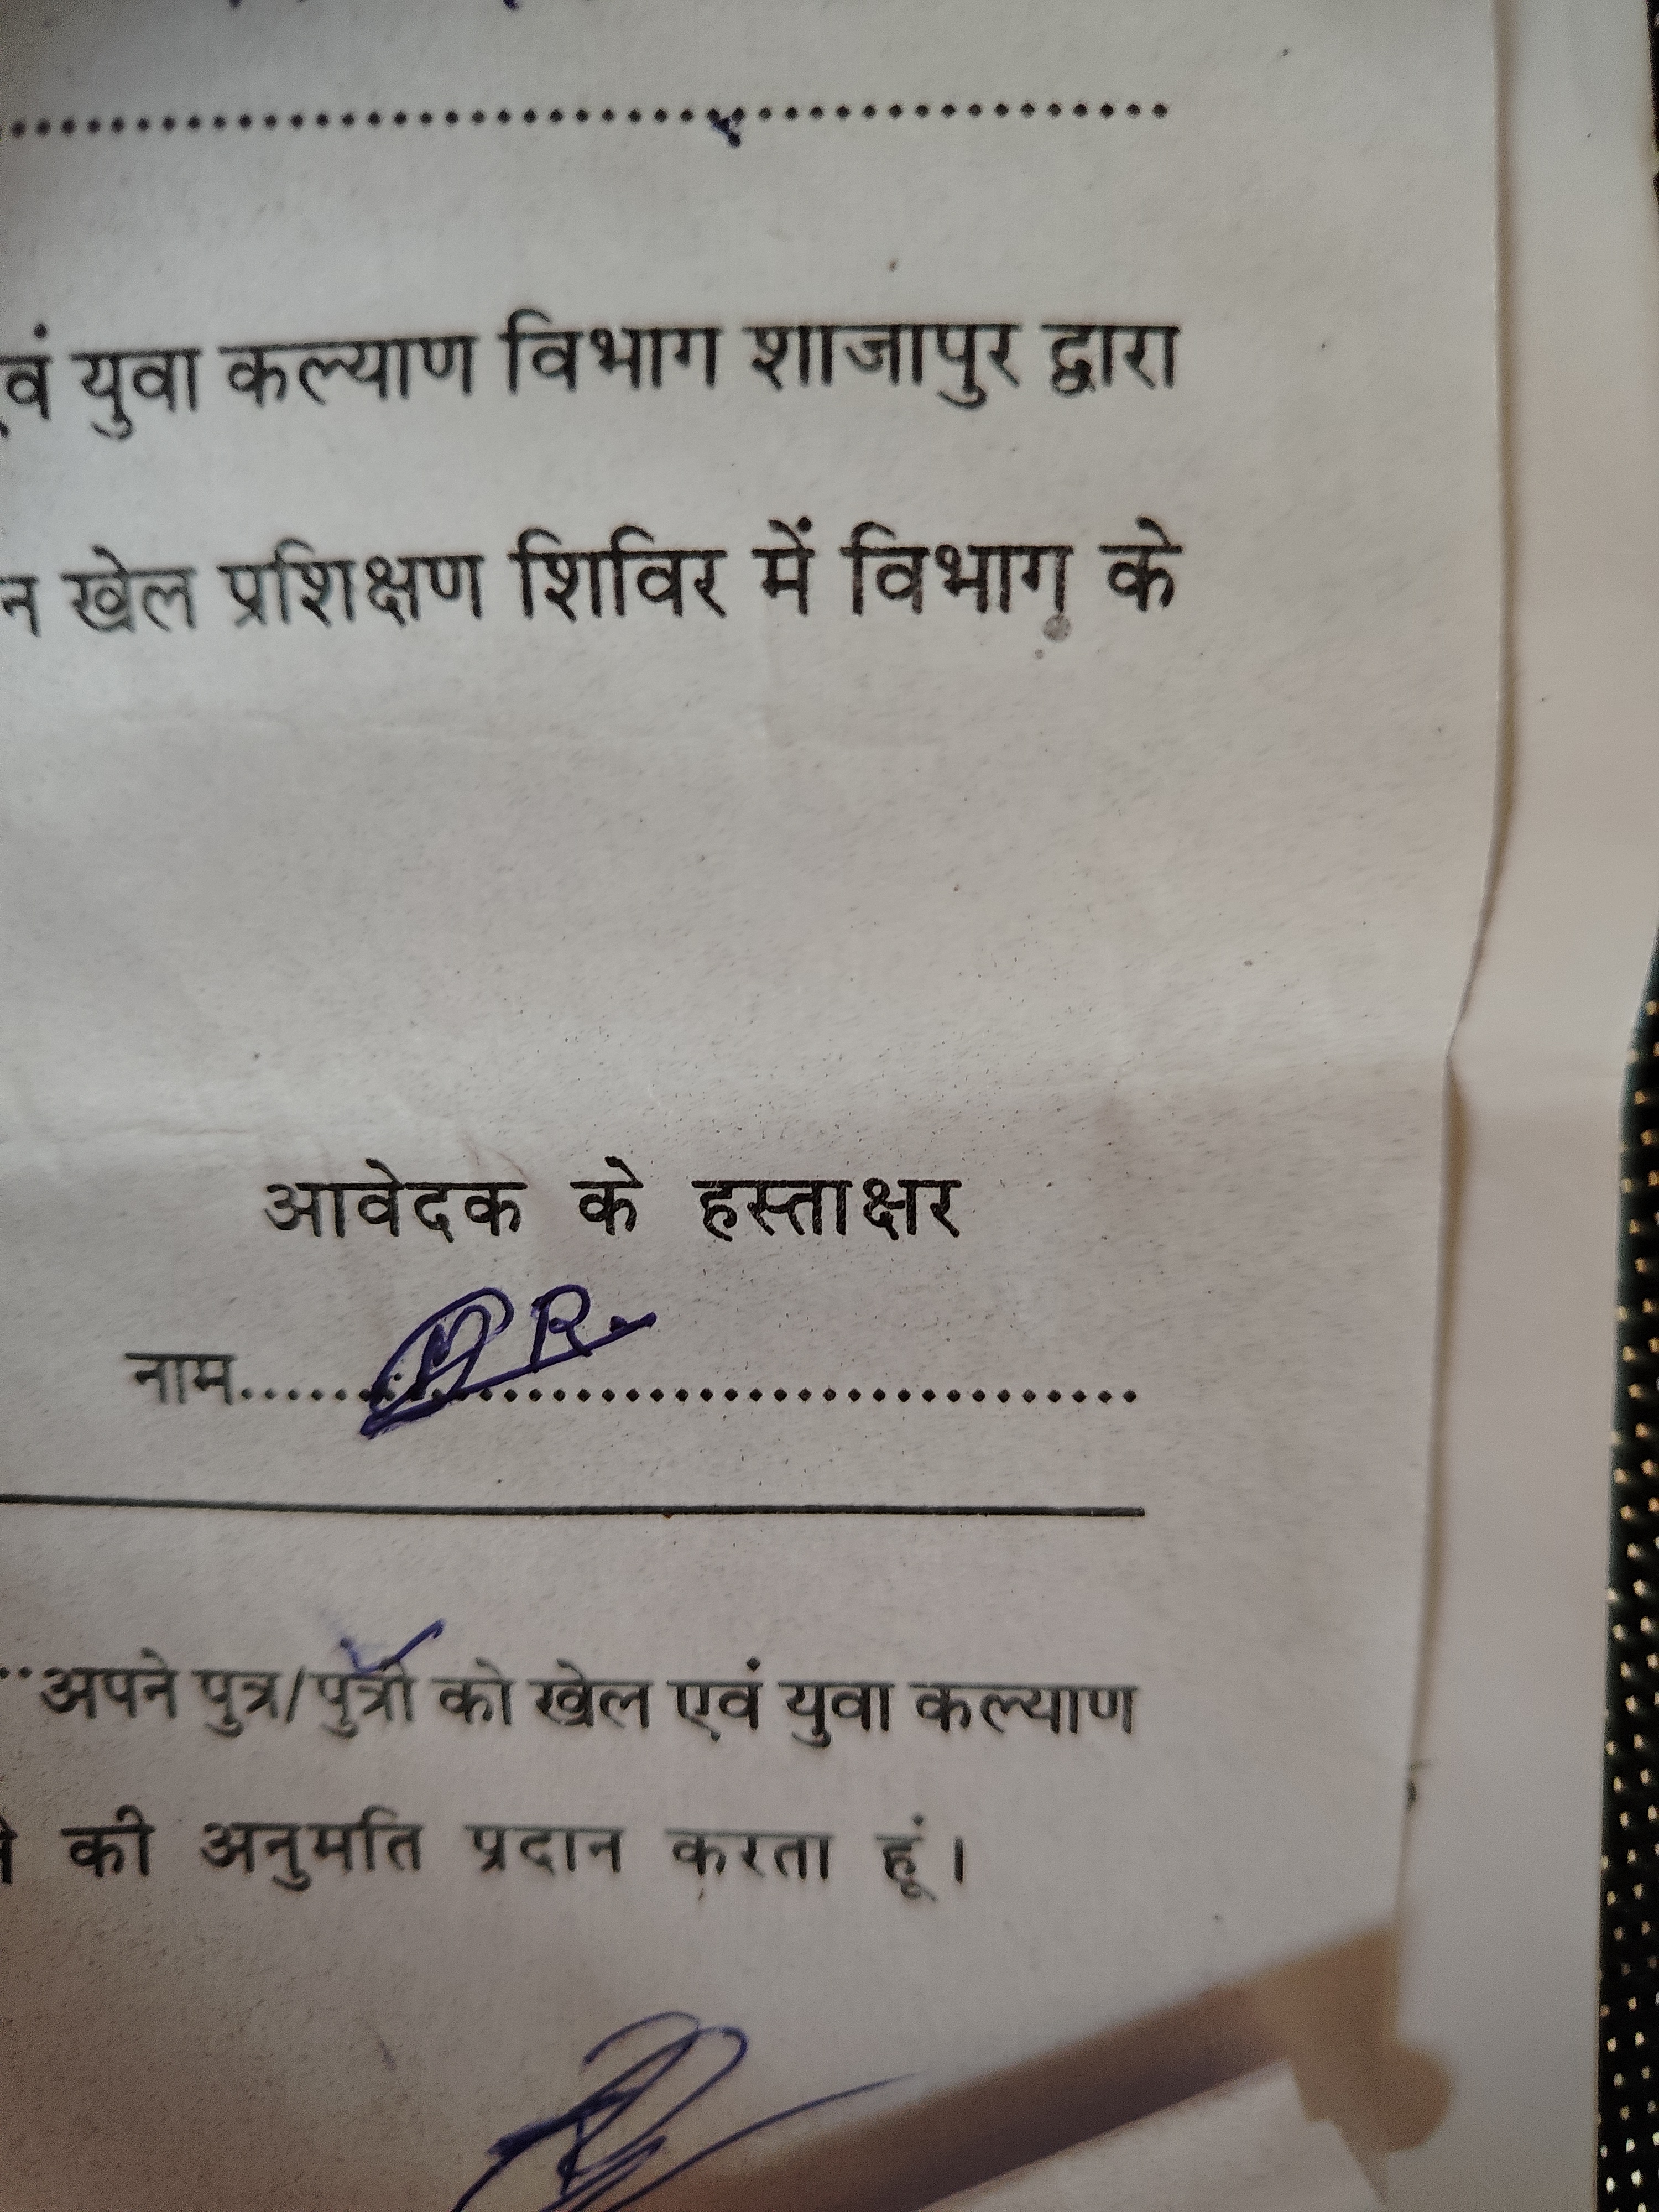 ............................................................
एवं युवा कल्याण विभाग शाजापुर द्वारा
न खेल प्रशिक्षण शिविर में विभाग के
आवेदक के हस्ताक्षर
नाम............................................................
अपने पुत्र/पुत्री को खेल एवं युवा कल्याण
की अनुमति प्रदान करता हूं।